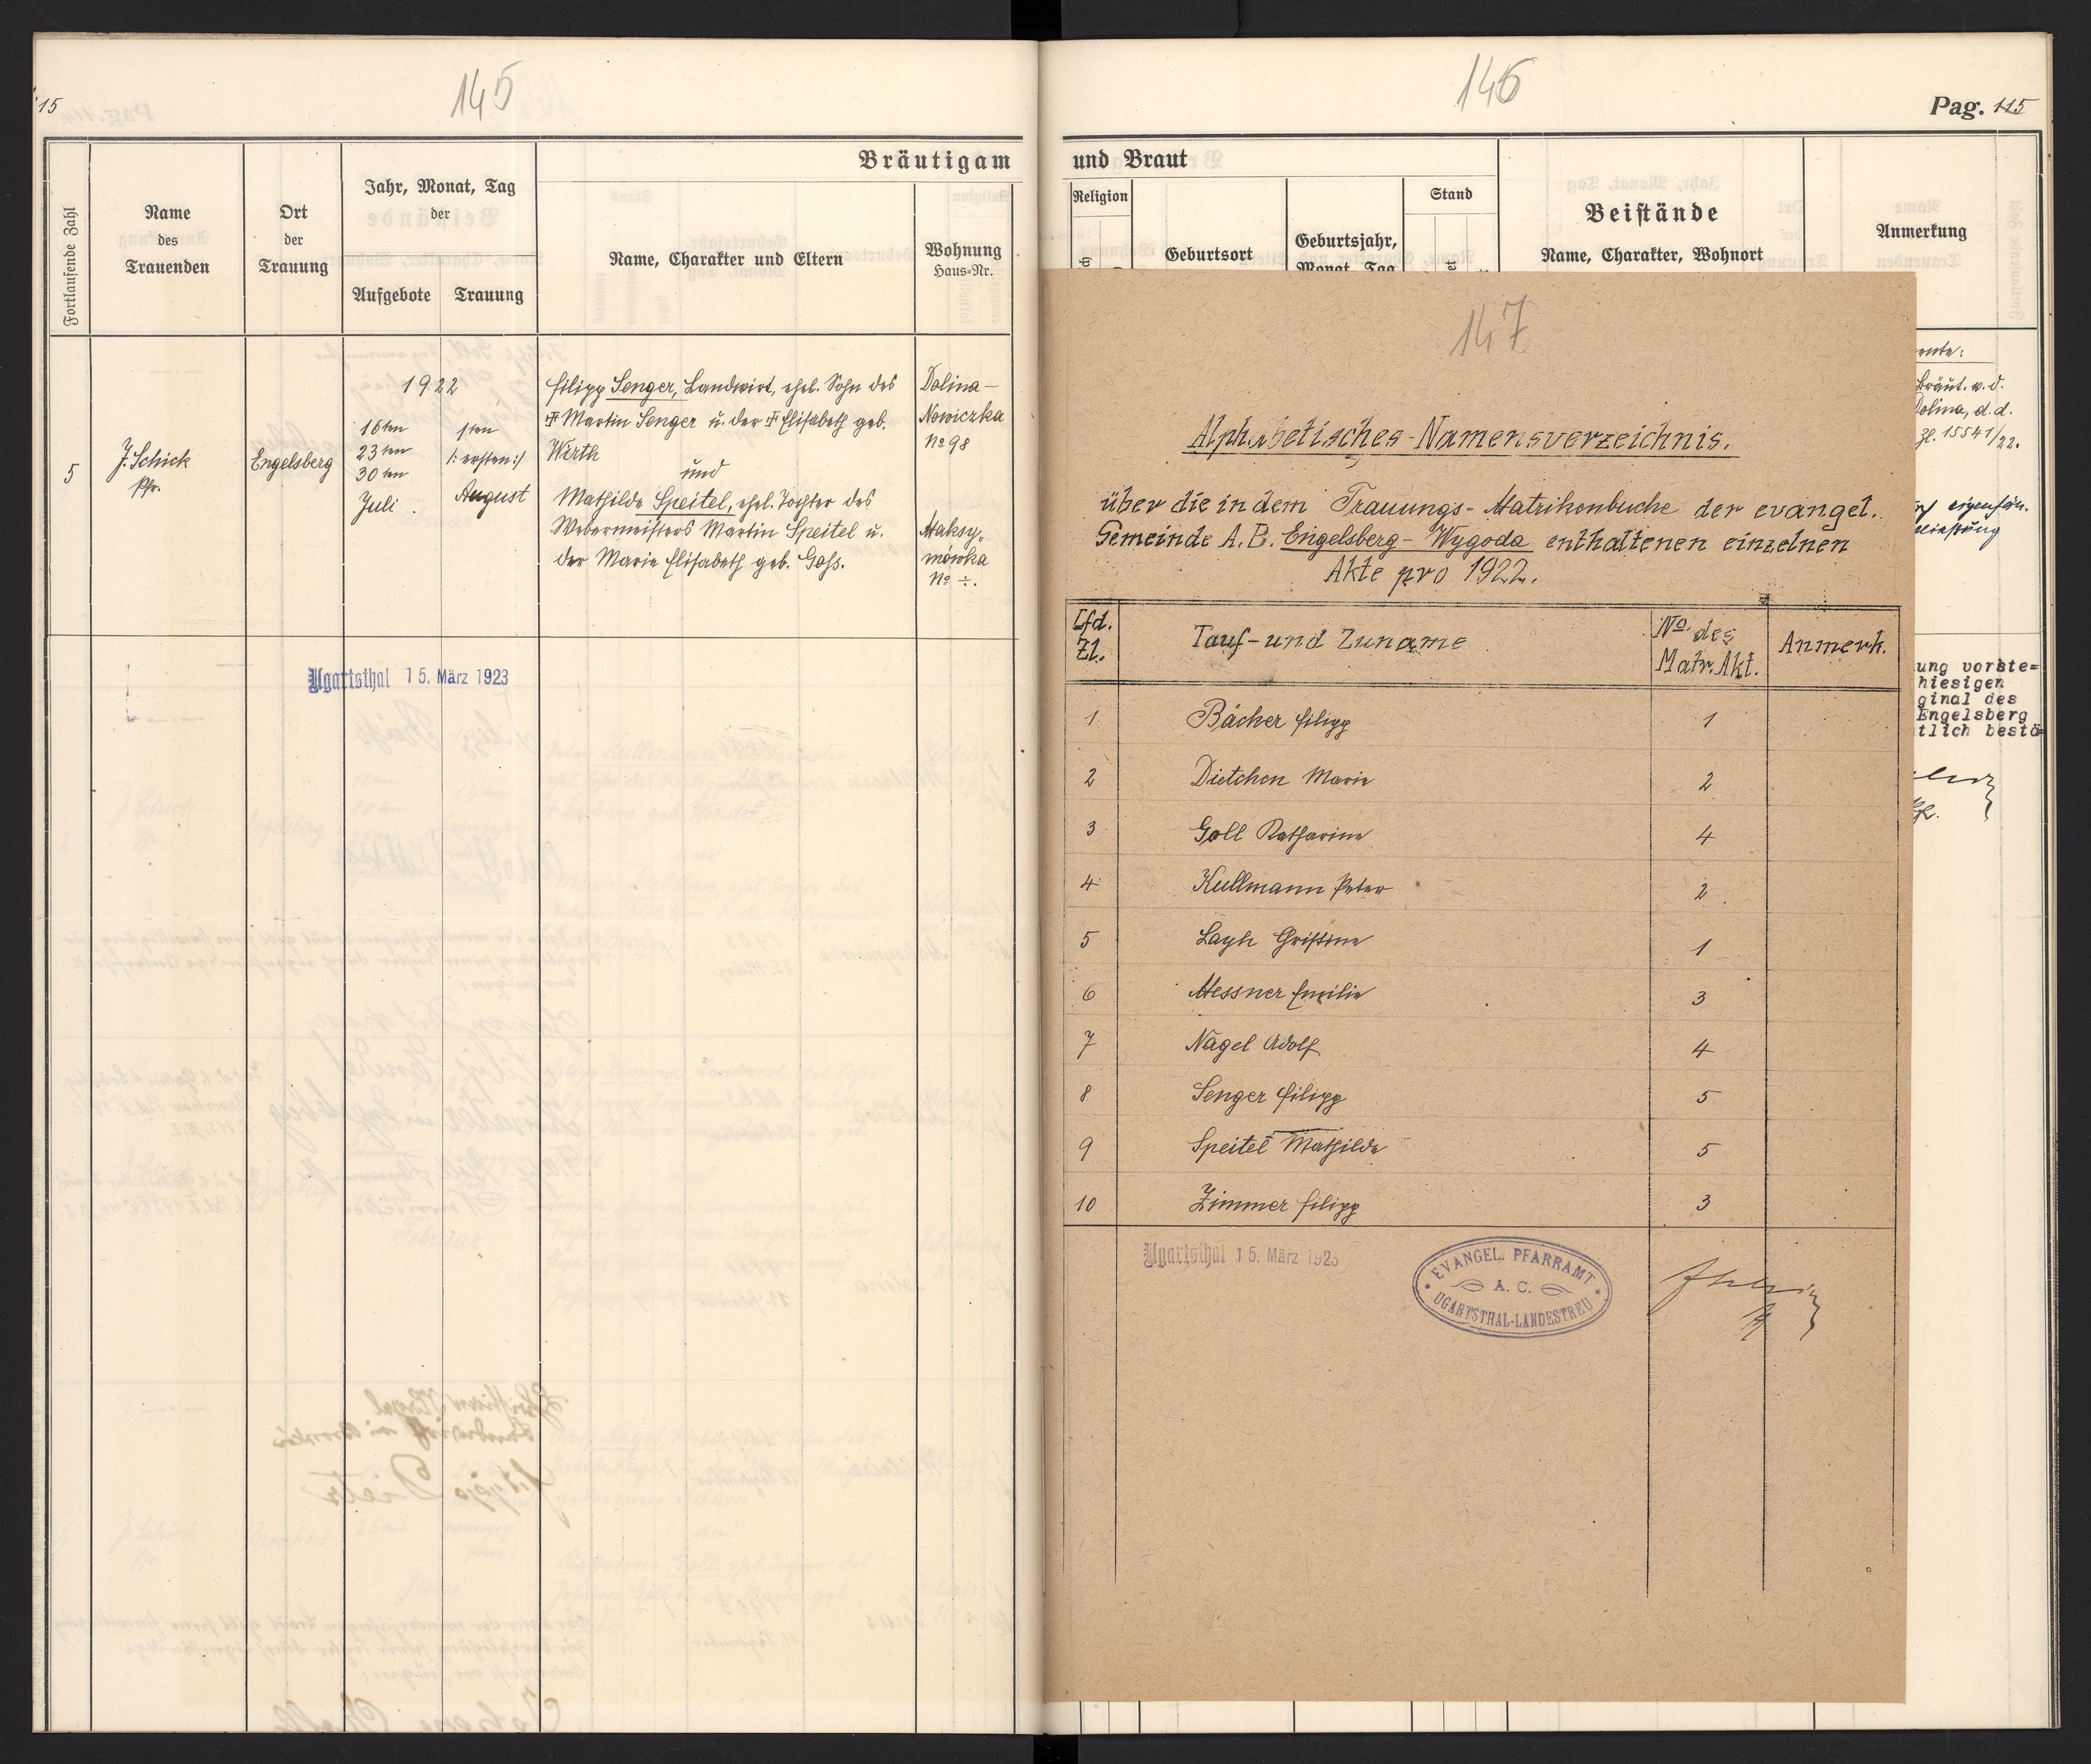 15
145
Fortlaufende Zahl
Name
des
Trauenden
Ort
der
Trauung
Jahr, Monat, Tag
der
Aufgebote
Trauung
Bräutigam
Name, Charakter und Eltern
Wohnung
Haus-Nr.
5
J. Schick
Pfr.
Engelsberg
1922
16ten
23ten
30ten
Juli.
1ten
/: ersten :/
August
Filipp Senger, Landwirt, ehel. Sohn des
Martin Senger u. der Elisabeth geb.
Wirth
und
Mathilde Speitel, ehel. Tochter des
Webermeisters Martin Speitel u.
der Marie Elisabeth geb. Gass.
Dolina-
Nowiczka
No 98
Maksy-
mówka
No ÷.
Ugartsthal 15. März 1923
146
Pag. 115
und Braut
Religion
Geburtsort
Geburtsjahr,
Monat, Tag
Stand
Beistände
Name, Charakter, Wohnort
Anmerkung
Bräut. v. d.
Dolina, d. d.
Zl. 15541/22.
ung vorste=
hiesigen
ginal des
Engelsberg
tlich bestä=
147
Alphabetisches-Namensverzeichnis.
über die in dem Trauungs-Matrikenbuche der evangel.
Gemeinde A. B. Engelsberg-Wygoda enthaltenen einzelnen
Akte pro 1922.
Lfd. Zl.
Tauf- und Zuname
No. des Matr. Akt.
Anmerk.
1 Bächer Filipp 1
2 Dietchen Marie 2
3 Goll Katharine 4
4 Kullmann Peter 2
5 Layh Christine 1
6 Messner Emilie 3
7 Nagel Adolf 4
8 Senger Filipp 5
9 Speitel Mathilde 5
10 Zimmer Filipp 3
Ugartsthal 15. März 1923
EVANGEL. PFARRAMT
A. C.
UGARTSTHAL-LANDESTREU